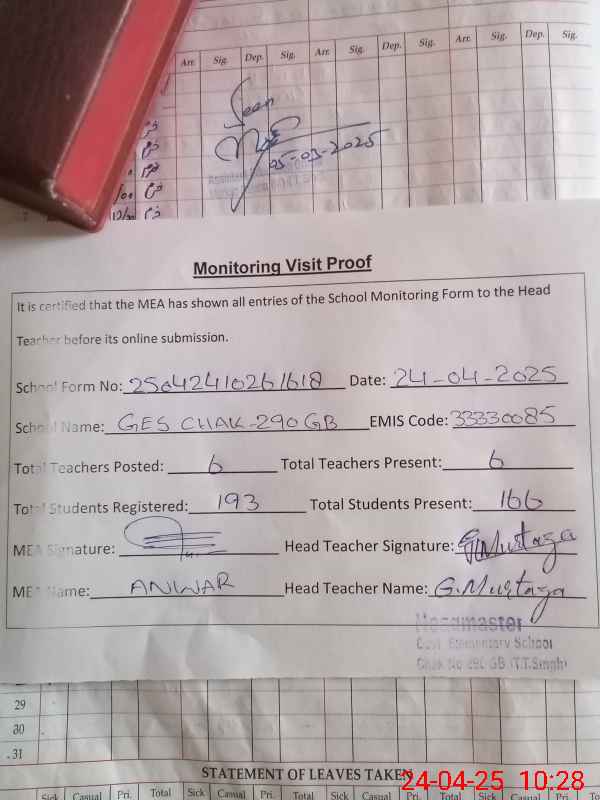 Arr. Sig. Dep. Sig. Arr. Sig. Dep. Sig. Arr. Sig. Dep. Sig.
Seen
05-03-2025
Monitoring Visit Proof
It is certified that the MEA has shown all entries of the School Monitoring Form to the Head
Teacher before its online submission.
School Form No: 25042410261618 Date: 24-04-2025
School Name: GES CHAK-290 GB EMIS Code: 33330085
Total Teachers Posted: 6 Total Teachers Present: 6
Total Students Registered: 193 Total Students Present: 166
MEA Signature: Head Teacher Signature: G.Murtaza
MEA Name: ANWAR Head Teacher Name: G.Murtaza
Headmaster
Govt. Elementary School
Chak No 290 GB (T.T.Singh)
29
30
31
STATEMENT OF LEAVES TAKEN
24-04-25 10:28
Sick Casual Pri. Total Sick Casual Pri. Total Sick Casual Pri. Total